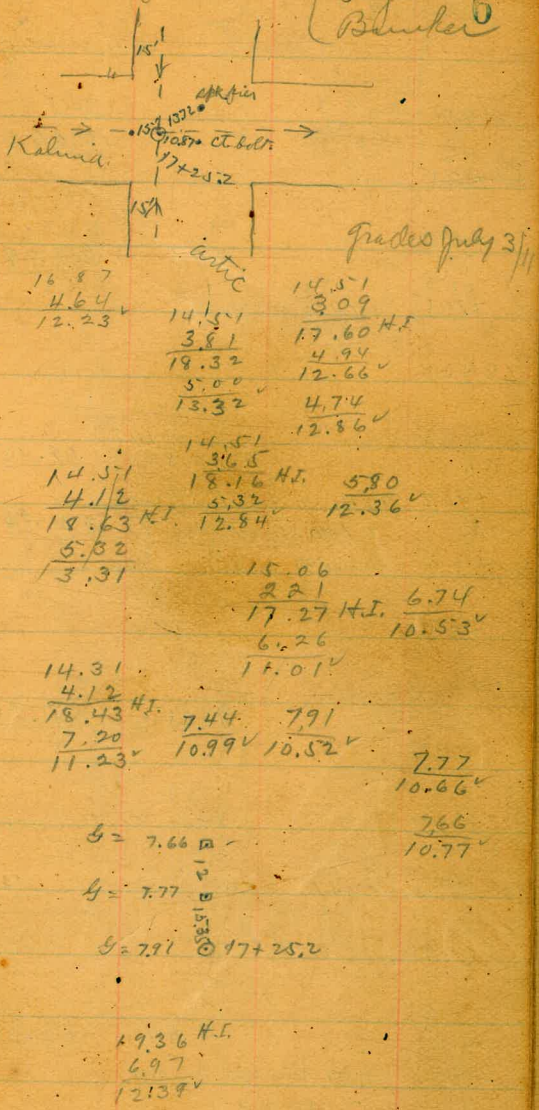 6
Bunker
15'
13.72
15.7
10.87 ct. bolt
Kaluia
17+25.2
15'
artic
Grades July 3/11
16.87
4.64
12.23 ✓
14.51
3.81
18.32
5.00
13.32 ✓
14.51
3.09
17.60 H.I.
4.94
12.66 ✓
4.74
12.86 ✓
14.51
4.12
18.63 H.I.
5.32
13.31
14.51
3.65
18.16 H.I.
5.32
12.84 ✓
5.80
12.36 ✓
15.06
2.21
17.27 H.I.
6.26
11.01 ✓
6.74
10.53 ✓
14.31
4.12
18.43 H.I.
7.20
11.23 ✓
7.44
10.99 ✓
7.91
10.52 ✓
7.77
10.66 ✓
7.66
10.77 ✓
G = 7.66
12
G = 7.77
15.35
G = 7.91 17+25.2
19.36 H.I.
6.97
12.39 ✓